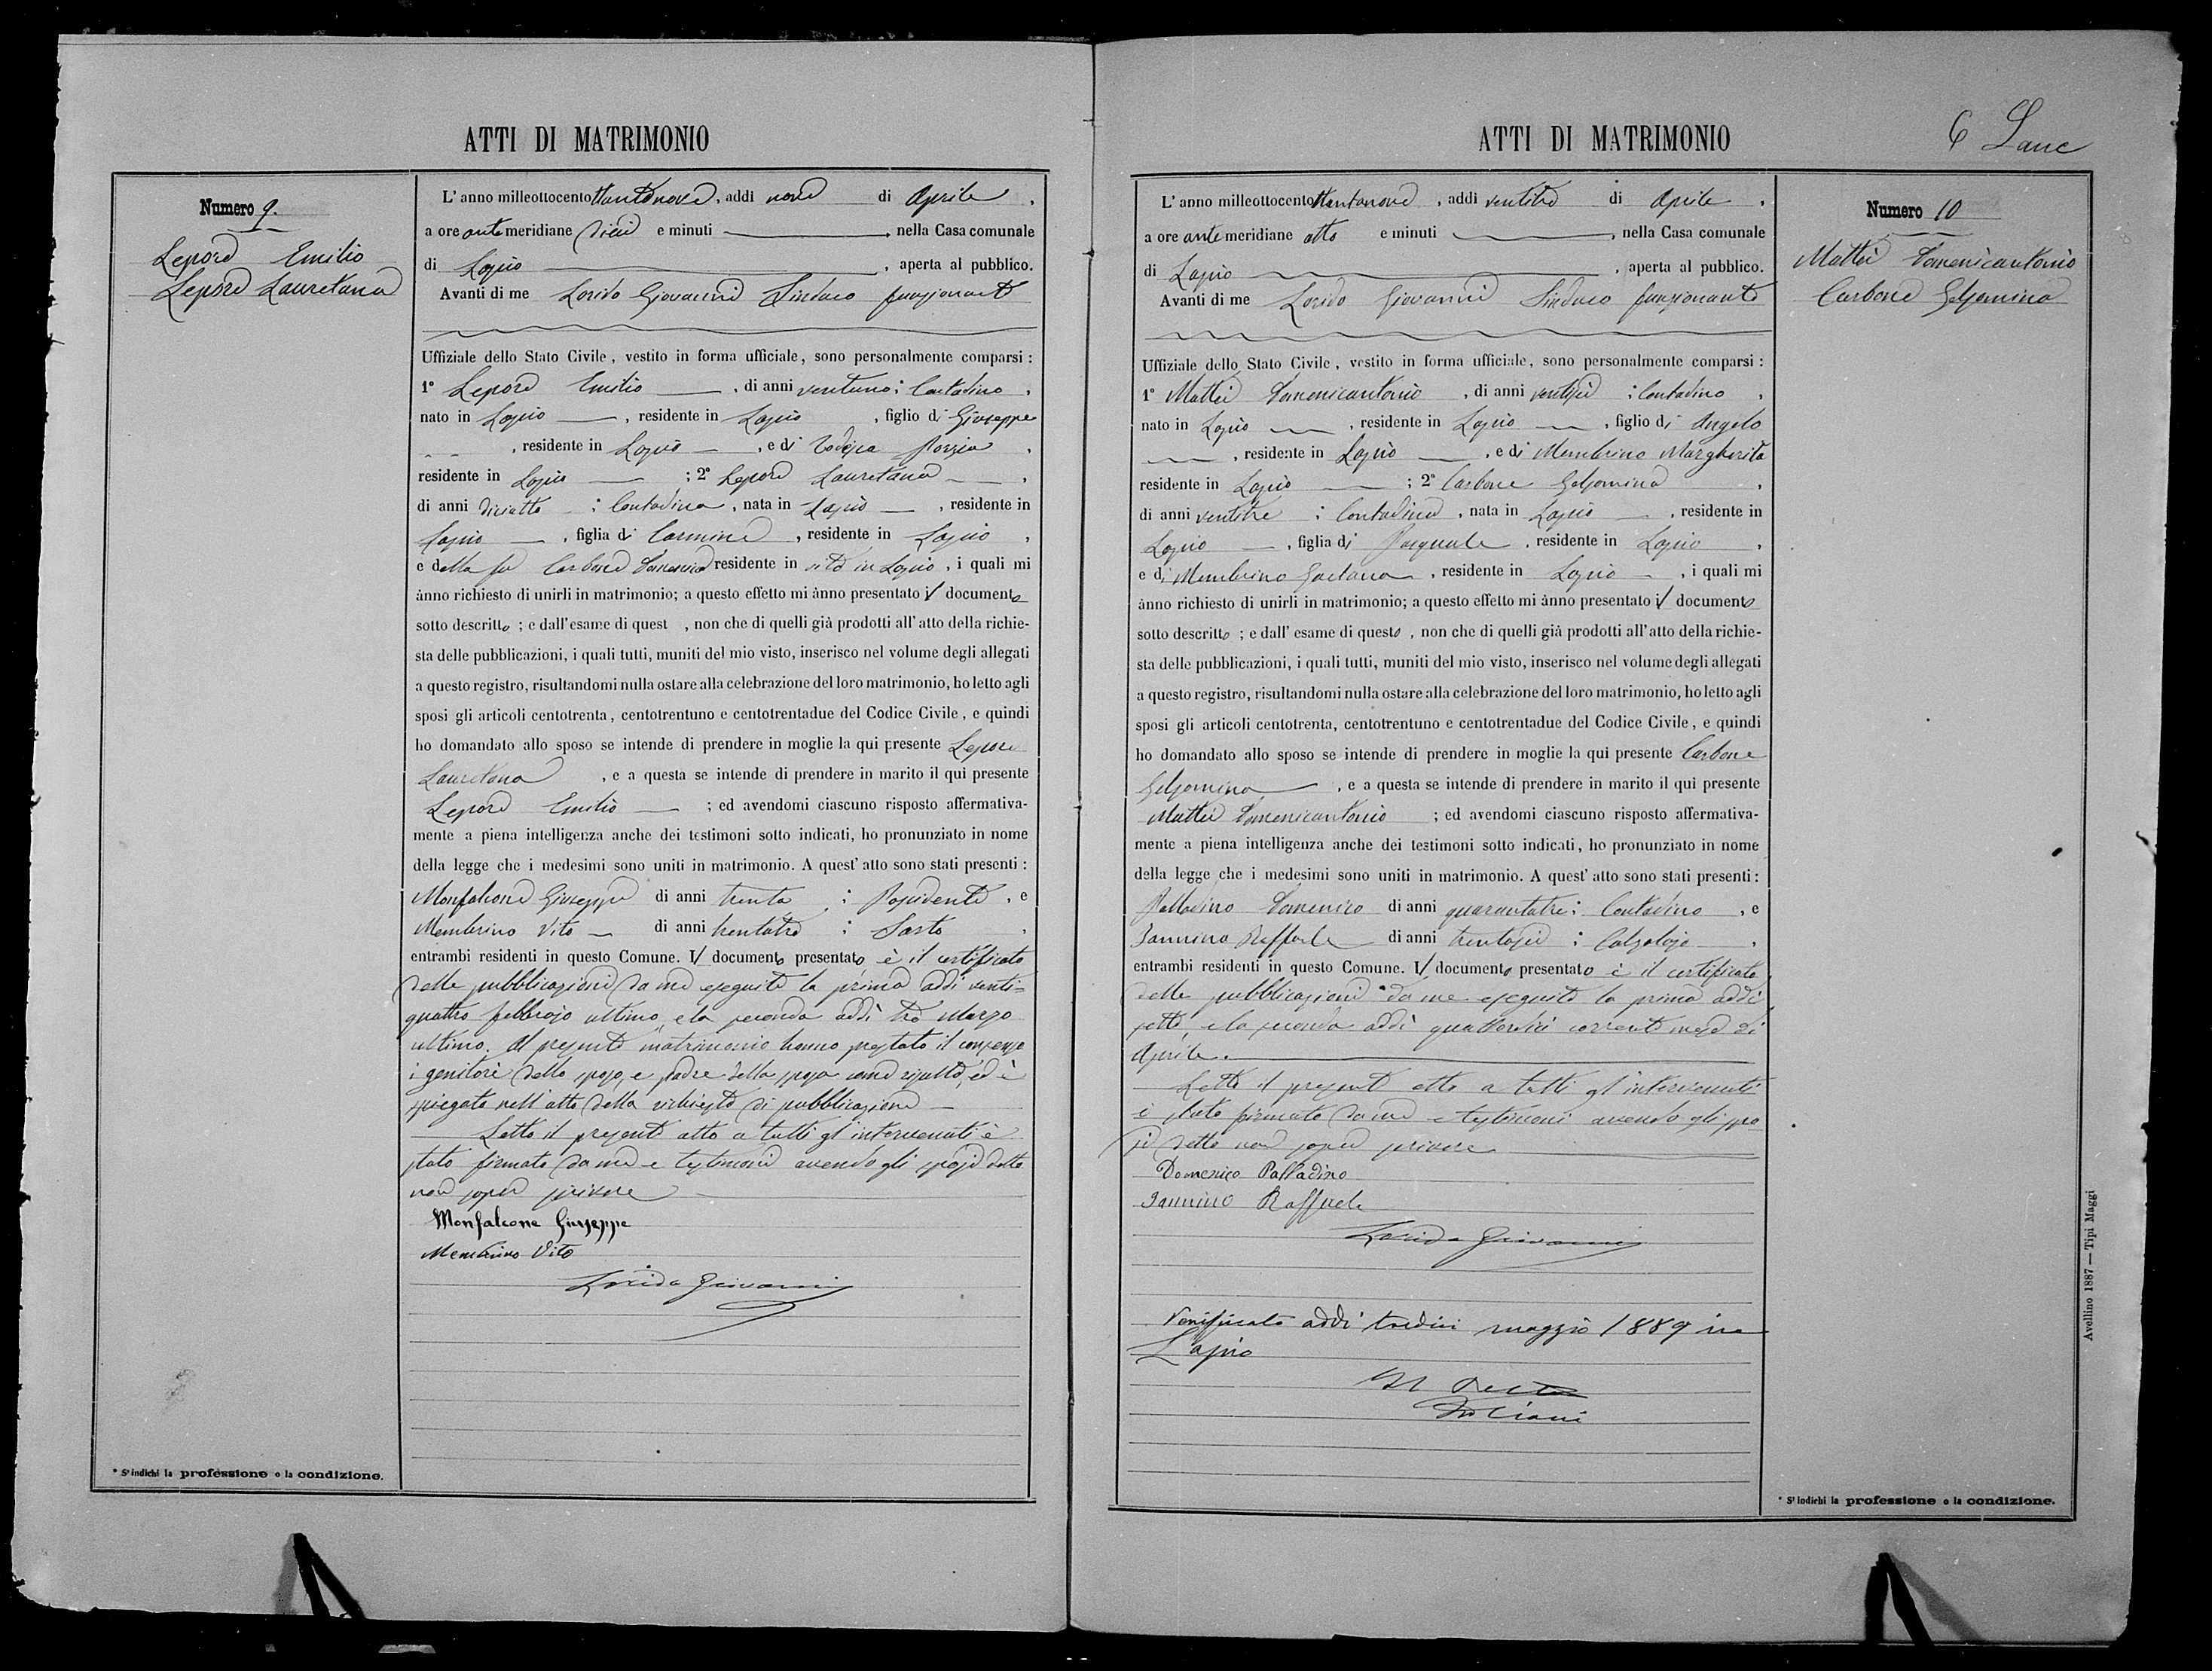 ATTI DI MATRIMONIO
Numero 9.
Lepore Emilio
Lepore Lauretana
L'anno milleottocentottantanove, addì nove di Aprile,
a ore antemeridiane dieci e minuti, nella Casa comunale
di Lapio, aperta al pubblico.
Avanti di me Lorido Giovanni Sindaco funzionante
Uffiziale dello Stato Civile, vestito in forma ufficiale, sono personalmente comparsi:
1° Lepore Emilio, di anni ventuno; Contadino,
nato in Lapio, residente in Lapio, figlio di Giuseppe
, residente in Lapio, e di Porzia,
residente in Lapio; 2° Lepore Lauretana,
di anni diciotto; Contadina, nata in Lapio, residente in
Lapio, figlia di Carmine, residente in Lapio,
e della fu Carbone Domenica residente in vita in Lapio, i quali mi
ànno richiesto di unirli in matrimonio; a questo effetto mi ànno presentato il documento
sotto descritto; e dall'esame di quest, non che di quelli già prodotti all'atto della richie-
sta delle pubblicazioni, i quali tutti, muniti del mio visto, inserisco nel volume degli allegati
a questo registro, risultandomi nulla ostare alla celebrazione del loro matrimonio, ho letto agli
sposi gli articoli centotrenta, centotrentuno e centotrentadue del Codice Civile, e quindi
ho domandato allo sposo se intende di prendere in moglie la qui presente Lepore
Lauretana, e a questa se intende di prendere in marito il qui presente
Lepore Emilio; ed avendomi ciascuno risposto affermativa-
mente a piena intelligenza anche dei testimoni sotto indicati, ho pronunziato in nome
della legge che i medesimi sono uniti in matrimonio. A quest'atto sono stati presenti:
Monfalcone Giuseppe di anni trenta; Possidente, e
Membrino Vito di anni trentatre; Sarto,
entrambi residenti in questo Comune. Il documento presentato è il certificato
delle pubblicazioni da me eseguite la prima addì venti=
quattro febbrajo ultimo, e la seconda addì tre Marzo
ultimo. Al presente matrimonio hanno prestato il consenso
i genitori dello sposo, e padre della sposa come risulta, ed è
spiegato nell'atto della richiesta di pubblicazione
Letto il presente atto a tutti gl'intervenuti è
stato firmato da me e testimoni avendo gli sposi detto
non saper scrivere
Monfalcone Giuseppe
Membrino Vito
Lorido Giovanni
* Si indichi la professione o la condizione.
ATTI DI MATRIMONIO
6
Numero 10
Mattei Domenicantonio
Carbone Gelsomina
L'anno milleottocentottantanove, addì ventitre di Aprile,
a ore antemeridiane otto e minuti, nella Casa comunale
di Lapio, aperta al pubblico.
Avanti di me Lorido Giovanni Sindaco funzionante
Uffiziale dello Stato Civile, vestito in forma ufficiale, sono personalmente comparsi:
1° Mattei Domenicantonio, di anni ventisei; Contadino,
nato in Lapio, residente in Lapio, figlio di Angelo
, residente in Lapio, e di Membrino Margherita
residente in Lapio; 2° Carbone Gelsomina,
di anni ventitre; Contadina, nata in Lapio, residente in
Lapio, figlia di Pasquale, residente in Lapio,
e di Membrino Gaetana, residente in Lapio, i quali mi
ànno richiesto di unirli in matrimonio; a questo effetto mi ànno presentato il documento
sotto descritto; e dall'esame di questo, non che di quelli già prodotti all'atto della richie-
sta delle pubblicazioni, i quali tutti, muniti del mio visto, inserisco nel volume degli allegati
a questo registro, risultandomi nulla ostare alla celebrazione del loro matrimonio, ho letto agli
sposi gli articoli centotrenta, centotrentuno e centotrentadue del Codice Civile, e quindi
ho domandato allo sposo se intende di prendere in moglie la qui presente Carbone
Gelsomina, e a questa se intende di prendere in marito il qui presente
Mattei Domenicantonio; ed avendomi ciascuno risposto affermativa-
mente a piena intelligenza anche dei testimoni sotto indicati, ho pronunziato in nome
della legge che i medesimi sono uniti in matrimonio. A quest'atto sono stati presenti:
Palladino Domenico di anni quarantatre; Contadino, e
Iannino Raffaele di anni trentasei; Calzolajo,
entrambi residenti in questo Comune. Il documento presentato è il certificato
delle pubblicazioni da me eseguite la prima addì
sette, e la seconda addì quattordici corrente mese di
Aprile.
Letto il presente atto a tutti gl'intervenuti
è stato firmato da me e testimoni avendo gli spo
si detto non saper scrivere
Domenico Palladino
Iannino Raffaele
Lorido Giovanni
Verificato addì tredici maggio 1889 in
Lapio
* Si indichi la professione o la condizione.
Avellino 1887 — Tipi Maggi